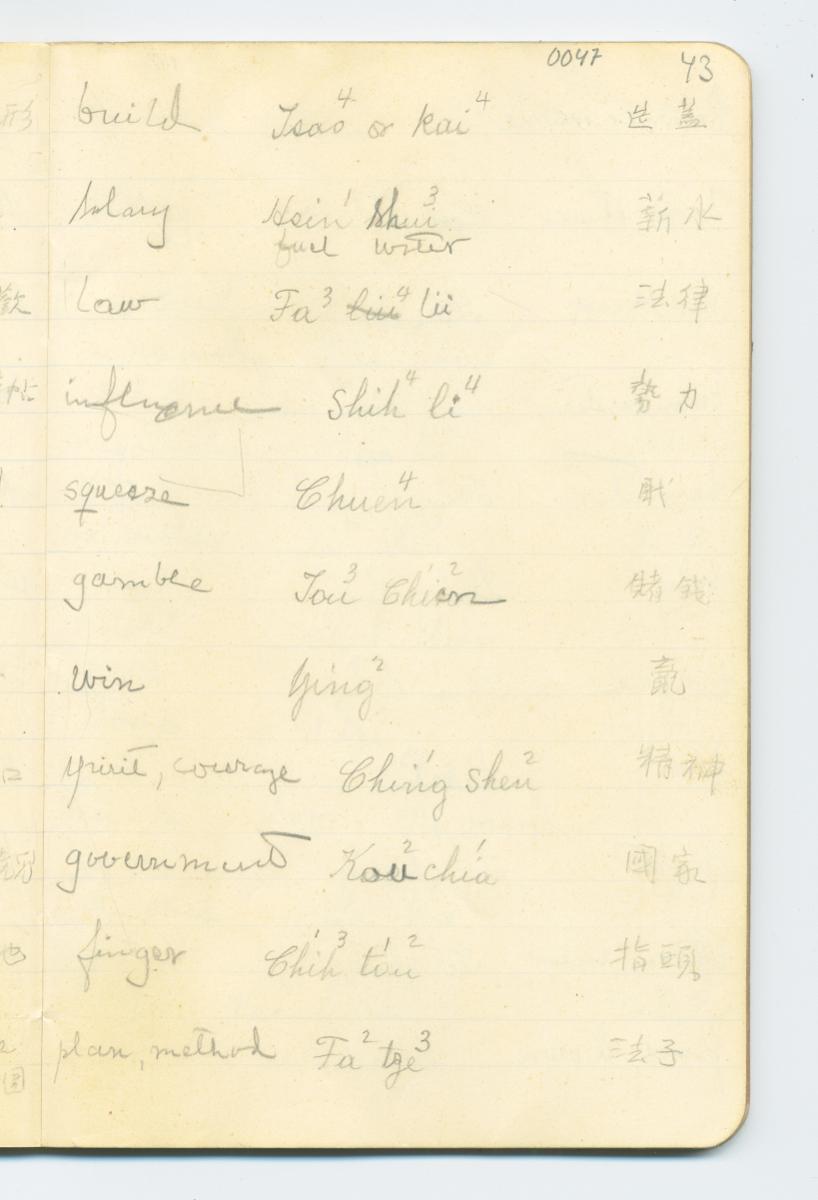 0047 43
build Tsao⁴ or Kai⁴ 造 蓋
salary Hsin¹ Shui³ 薪水
fuel water
law Fa³ liu⁴ lü 法律
influence Shih⁴ li⁴ 勢力
squeeze Chuen⁴
gamble Tou³ Ch'ien² 賭錢
win Ying² 贏
spirit, courage Ching¹ Shen² 精神
government Kou² chia¹ 國家
finger Chih³ t'ou² 指頭
plan, method Fa² tze³ 法子